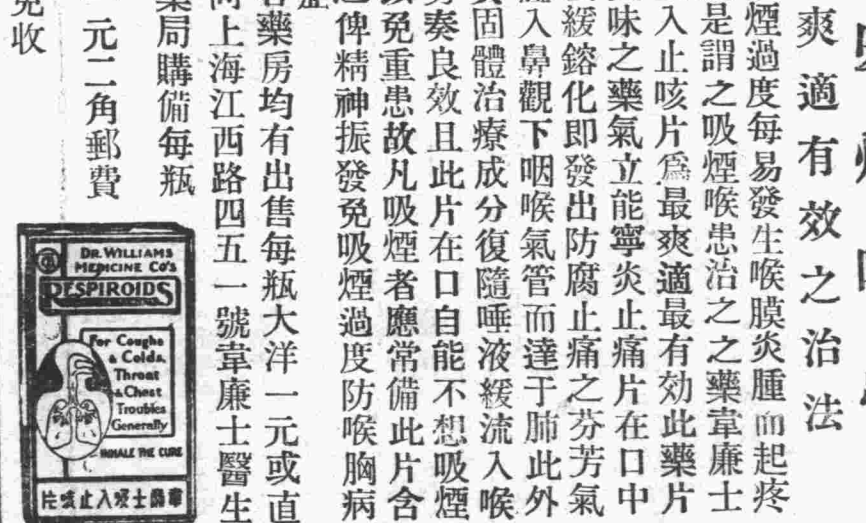 爽適有效之治法
煙過度每易發生喉膜炎腫而起疼
是謂之吸煙喉患治之之藥韋廉士
入止咳片爲最爽適最有効此藥片
味之藥氣立能寧炎止痛片在口中
緩鎔化即發出防腐止痛之芬芳氣
入鼻觀下咽喉氣管而達于肺此外
固體治療成分復隨唾液緩流入喉
奏良效且此片在口自能不想吸煙
免重患故凡吸煙者應常備此片含
俾精神振發免吸煙過度防喉胸病
藥房均有出售每瓶大洋一元或直
上海江西路四五一號韋廉士醫生
藥局購備每瓶
元二角郵費
免收
DR. WILLIAMS
MEDICINE CO'S
RESPIROIDS
For Coughs
& Colds,
Throat
& Chest
Troubles
Generally
INHALE THE CURE
片咳止入吸士廉韋